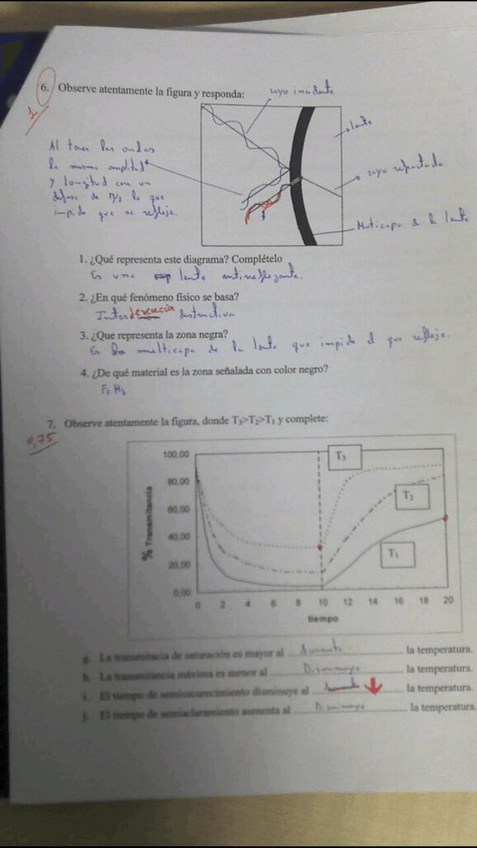 6. Observe atentamente la figura y responda:
1
rayo incidente
lente
rayo refractado
Multicapa de la lente
Al tener las ondas
la misma amplitud
y longitud con un
desfase de
impide que se refleje.
1. ¿Qué representa este diagrama? Complételo
Es una lente antireflejante.
2. ¿En qué fenómeno físico se basa?
destructiva
3. ¿Que representa la zona negra?
Es la multicapa de la lente que impide el que refleje.
4. ¿De qué material es la zona señalada con color negro?
7. Observe atentamente la figura, donde T3>T2>T1 y complete:
0,75
100,00
80,00
60,00
40,00
20,00
0,00
% Transmitancia
T3
T2
T1
0 2 4 6 8 10 12 14 16 18 20
tiempo
g. La transmitacia de saturación es mayor al Aumenta la temperatura.
h. La transmitancia máxima es menor al Disminuye la temperatura.
i. El tiempo de semioscurecimiento disminuye al la temperatura.
j. El tiempo de semiaclaramiento aumenta al Disminuye la temperatura.